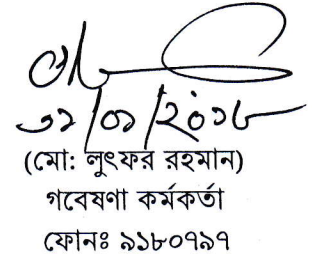 ৩১/০১/২০১৮
(মো: লুৎফর রহমান)
গবেষণা কর্মকর্তা
ফোনঃ ৯১৮০৭৯৭